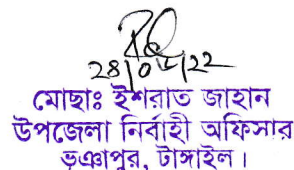 28/06/22
মোছাঃ ইশরাত জাহান
উপজেলা নির্বাহী অফিসার
ভূঞাপুর, টাঙ্গাইল।